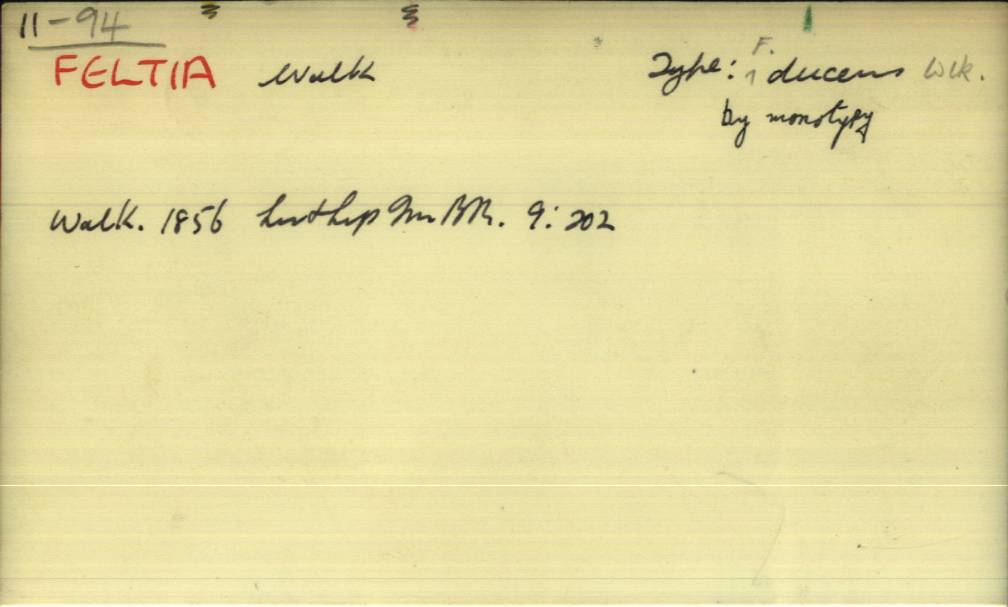 11-94
FELTIA Walk Type: F. ducens Wlk.
by monotypy
Walk. 1856 List Lep Ins BM. 9:202